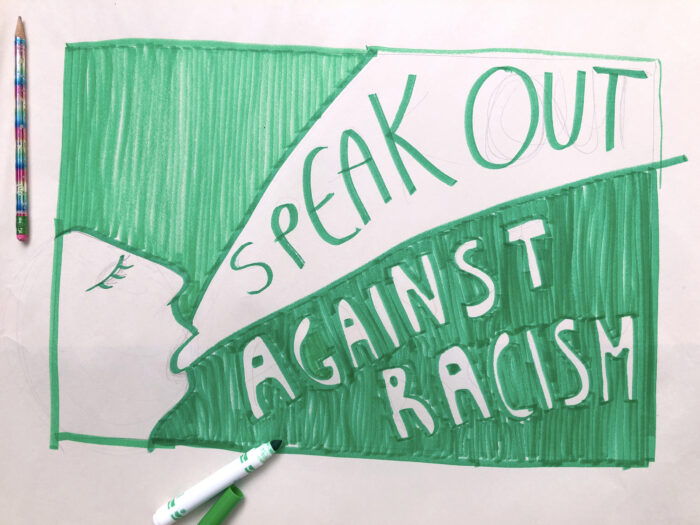 SPEAK OUT
AGAINST
RACISM